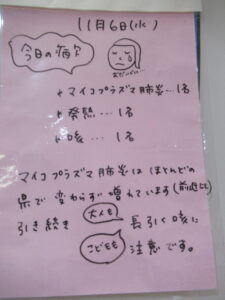 11月6日(水)
今日の病欠
+マイコプラズマ肺炎…1名
+発熱…1名
+咳…1名
マイコプラズマ肺炎はほとんどの
県で変わらず増えています(前週比)
引き続き 大人も 長引く咳に
こどもも 注意です。